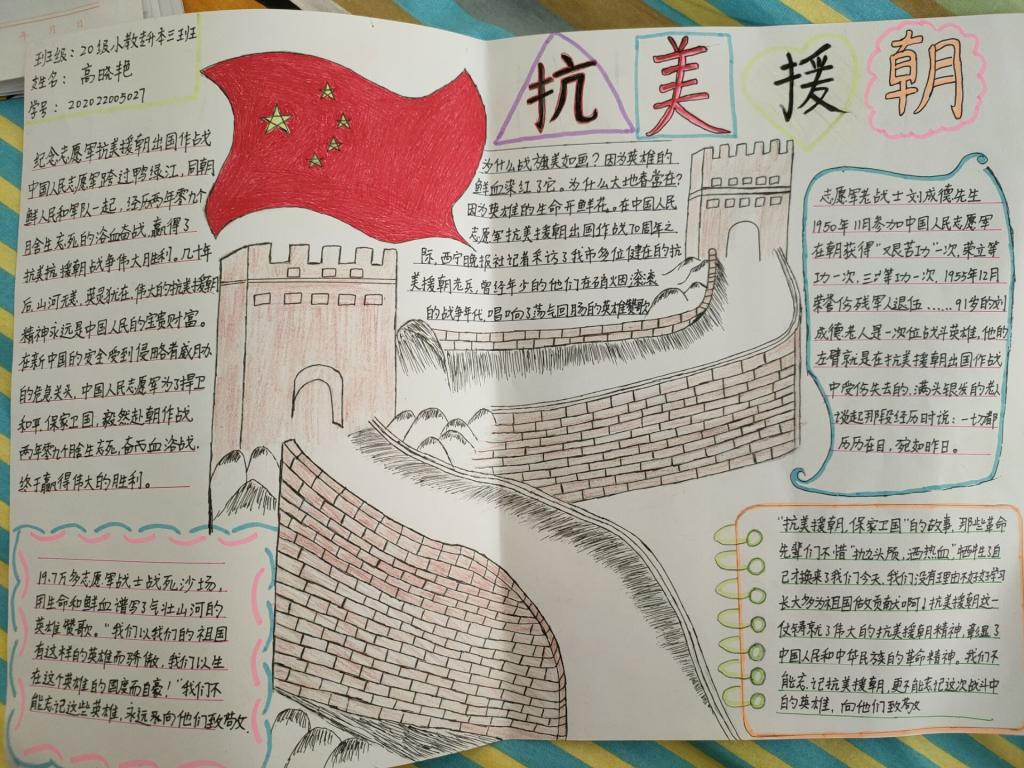 班级：20级小教专升本三班
姓名：高晓艳
学号：202022005027
抗美援朝
纪念志愿军抗美援朝出国作战
中国人民志愿军跨过鸭绿江，同朝
鲜人民和军队一起，经历两年零九个
月舍生忘死的浴血奋战，赢得了
抗美抗援朝战争伟大胜利。几十年
后，山河无恙，英灵犹在，伟大的抗美援朝
精神永远是中国人民的宝贵财富。
在新中国的安全受到侵略者威胁
的危急关头，中国人民志愿军为了捍卫
和平、保家卫国，毅然赴朝作战
两年零九个舍生忘死，奋而血浴战，
终于赢得伟大的胜利。
为什么战旗美如画？因为英雄的
鲜血染红了它。为什么大地春常在？
因为英雄的生命开鲜花。在中国人民
志愿军抗美援朝出国作战70周年之
际，西宁晚报社记者采访了我市多位健在的抗
美援朝老兵，曾经年少的他们在硝烟滚滚
的战争年代，唱响了荡气回肠的英雄赞歌
志愿军老战士刘成德先生
1950年11月参加中国人民志愿军
在朝获得“艰苦功”一次，荣立等
功一次，三等功一次，1953年12月
荣誉伤残军人退伍……91岁的刘
成德老人是一次位战斗英雄，他的
左臂就是在抗美援朝出国作战
中受伤失去的，满头银发的老人
谈起那段经历时说：一切都
历历在目，宛如昨日。
19.7万多志愿军战士战死沙场，
用生命和鲜血谱写了气壮山河的
英雄赞歌。“我们以我们的祖国
有这样的英雄而骄傲，我们以生
在这个英雄的国度而自豪！”我们不
能忘记这些英雄，永远永向他们致敬。
“抗美援朝，保家卫国”的故事，那些革命
先辈们不惜“抛头颅，洒热血”牺牲了自
己才换来了我们今天，我们没有理由不好好学习
长大多为祖国做贡献啊！抗美援朝这一
仗铸就了伟大的抗美援朝精神，彰显了
中国人民和中华民族的革命精神。我们不
能忘记抗美援朝，更不能忘记这次战斗中
的英雄，向他们致敬